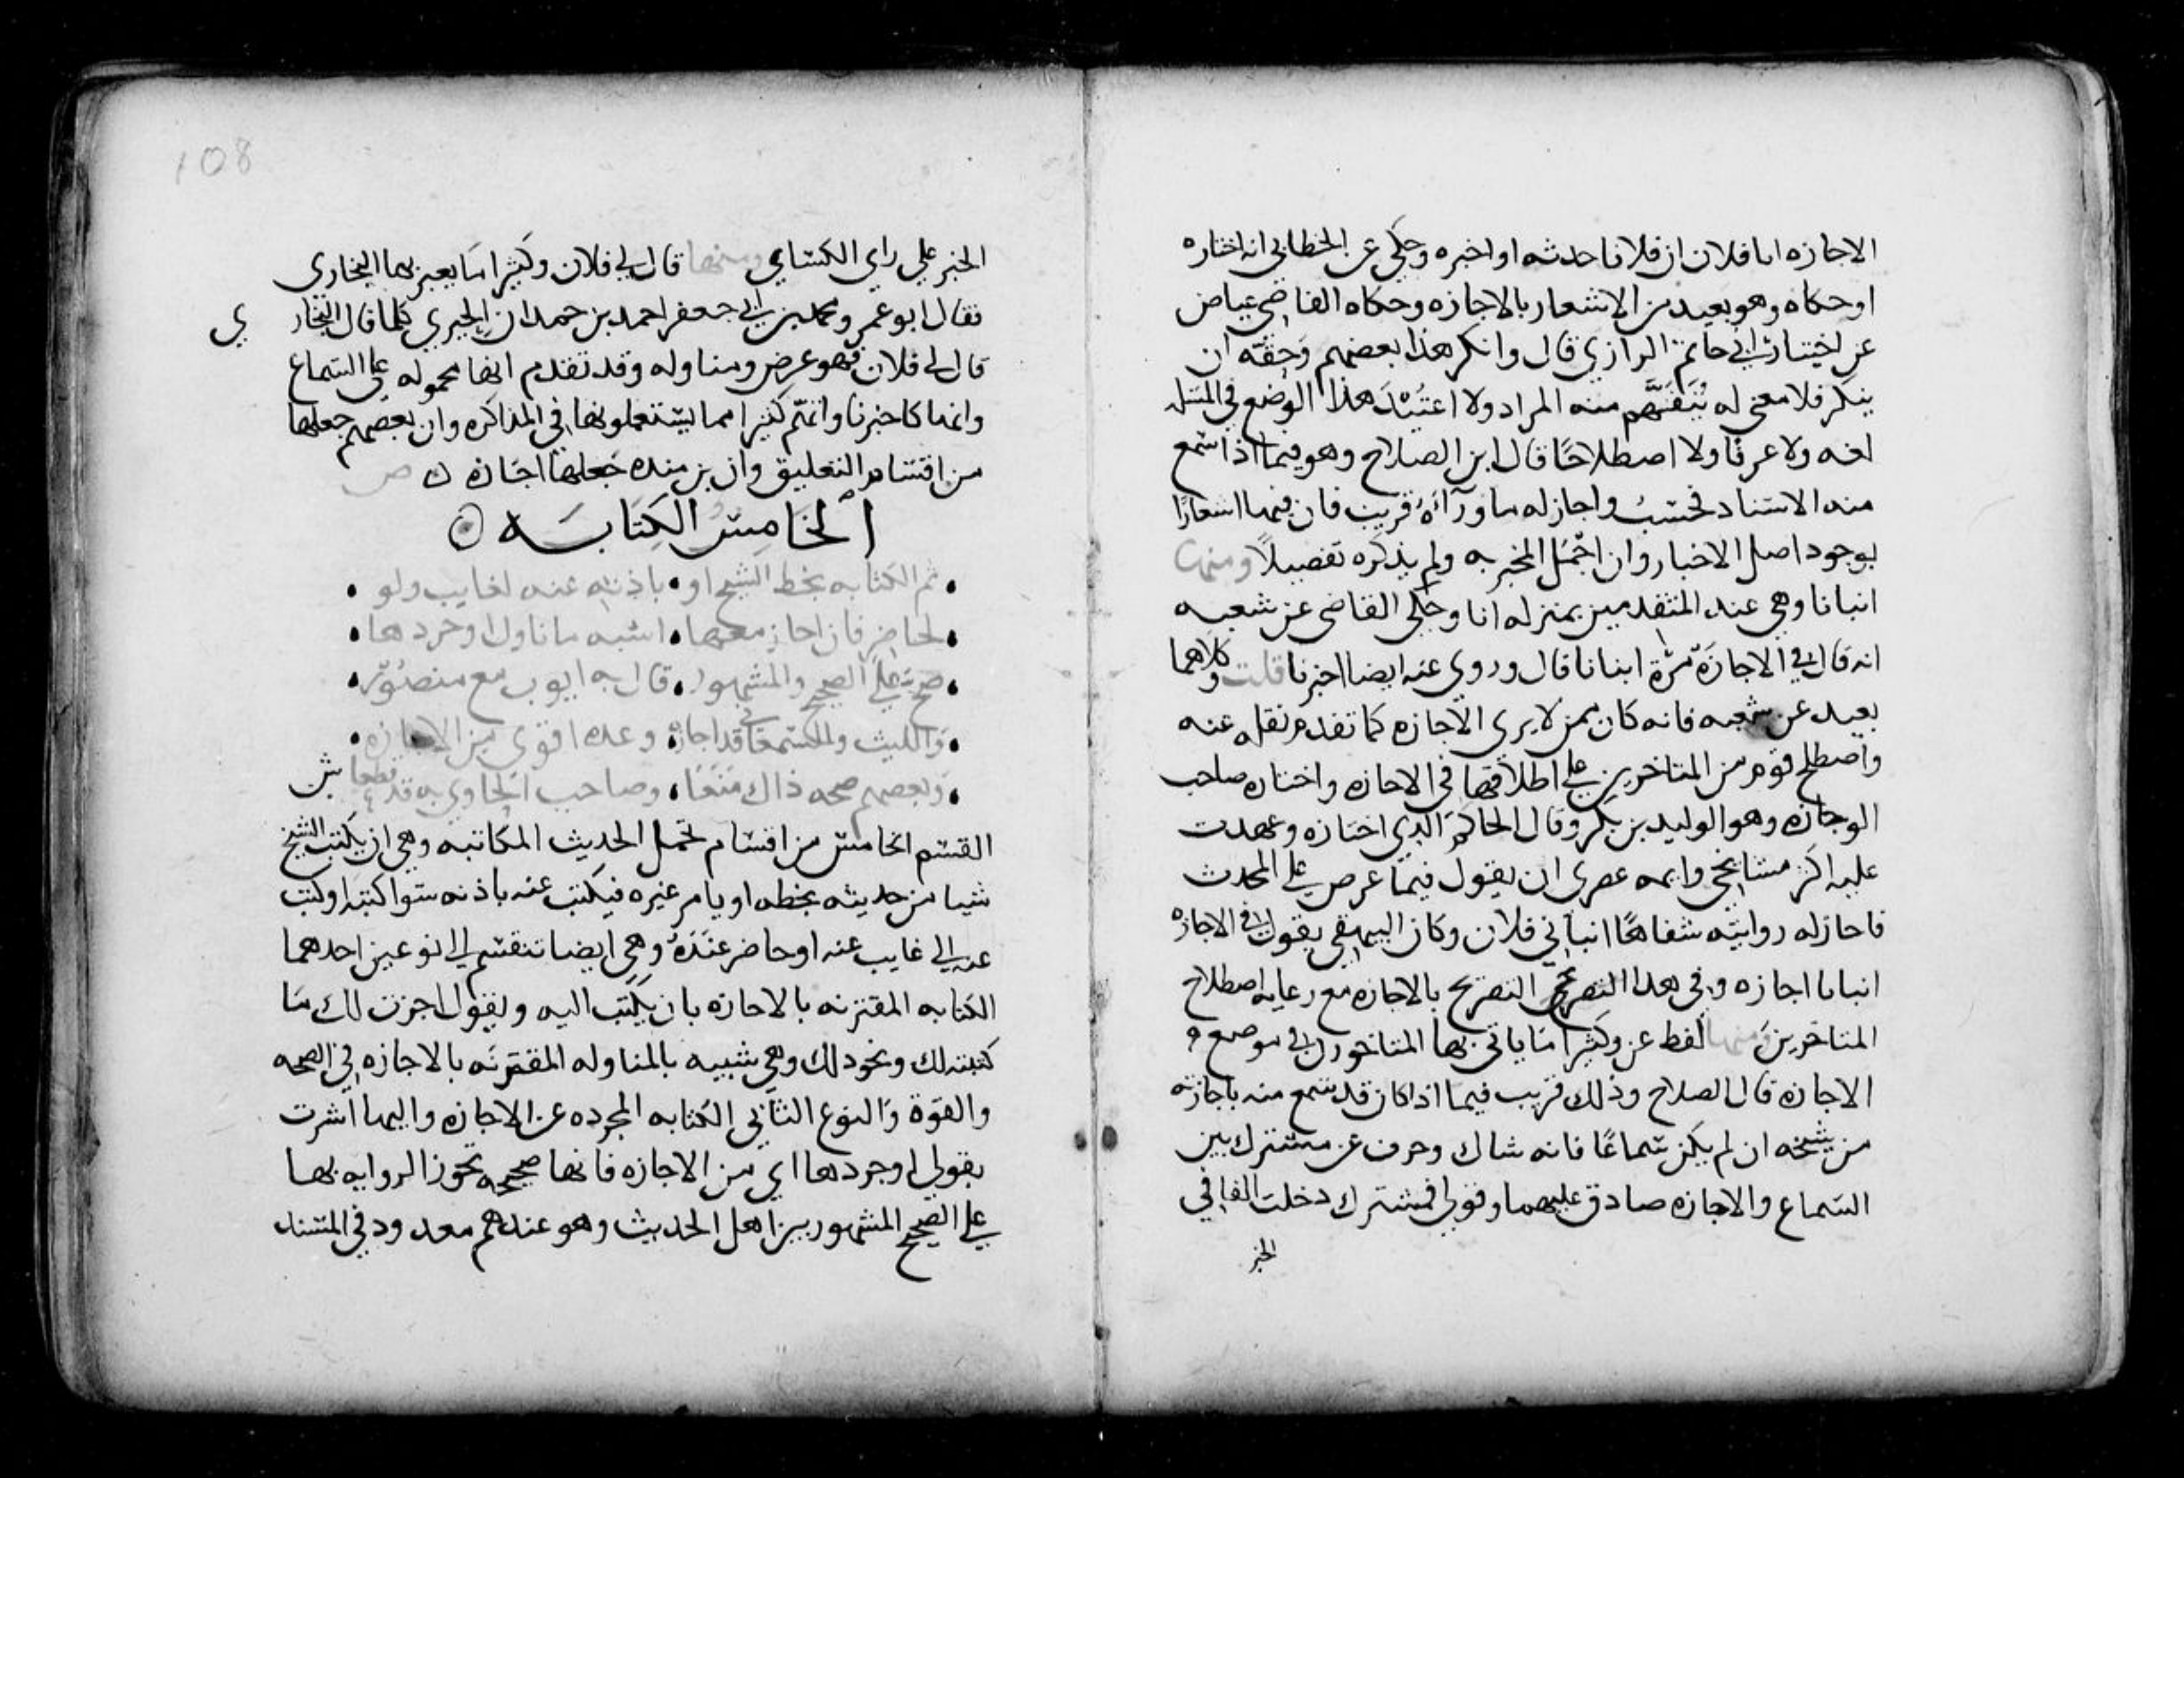 الاجازه انا فلان ان فلانا حدثه او اخبره وحكي عن الخطابي انه اختاره
او حكاه وهو بعيد من الاشعار بالاجازه وحكاه القاضي عياض
عن اختيار ابي حاتم الرازي قال وانكر هذا بعضهم وحقه ان
ينكر فلا معنى له يتفهم منه المراد ولا اعتيد هذا الوضع في المسله
لغه ولا عرفا ولا اصطلاحًا قال ابن الصلاح وهو فيما اذا سمع
منه الاسناد فحسب واجاز له ما ورآءه قريب فان فيها اشعارًا
بوجود اصل الاخبار وان اجمل المخبر به ولم يذكره تفصيلاً ومنها
انبانا وهي عند المتقدمين بمنزله انا وحكي القاضي عن شعبه
انه قال في الاجازة مرة انبانا قال وروي عنه ايضا اخبرنا قلت وكلاهما
بعيد عن شعبه فانه كان ممن لا يرى الاجازه كما تقدم نقله عنه
واصطلح قوم من المتاخرين علي اطلاقها في الاجازه واختاره صاحب
الوجازه وهو الوليد بن بكر وقال الحاكم الذي اختاره وعهدت
عليه اكثر مشايخي وايمه عصري ان يقول فيما عرض علي المحدث
فاجاز له روايته شفاهًا انباني فلان وكان البيهقي يقول في الاجازه
انبانا اجازه وفي هذا التصريح بالاجازه مع رعايه اصطلاح
المتاخرين ومنها لفظ عن وكثيرا ما ياتي بها المتاخرون في موضع
الاجازه قال الصلاح وذلك قريب فيما اذا كان قد سمع منه باجازته
من شيخه ان لم يكن سماعًا فانه شاك وحرف عن مشترك بين
السماع والاجازه صادق عليهما وقولي فمشترك دخلت الفا في
الخبر
108
الخبر علي راي الكسائي ومنها قال لي فلان وكثيرا ما يعبر بها البخاري
فقال ابو عمرو محمد بن ابي جعفر احمد بن حمدان الحيري كلما قال البخاري
قال لي فلان فهو عرض ومناوله وقد تقدم انها محموله على السماع
وانها كاخبرنا وانهم كثيرا مما يستعملونها في المذاكره وان بعضهم جعلها
من اقسام التعليق وان بن منده جعلها اجازه ن ص
الخامس الكتابه
ثم الكتابه بخط الشيخ او • باذنه عنه لغايب ولو
لحاضر فان اجاز معها • اشبه ما ناول او جردها
صح على الصحيح والمشهور • قال به ايوب مع منصور
والليث والسمعاني قد اجازه • وعده اقوى من الاجازه
وبعضهم صحه ذاك منعا • وصاحب الحاوي به قد قطعا ش
القسم الخامس من اقسام تحمل الحديث المكاتبه وهي ان يكتب الشيخ
شيا من حديثه بخطه او يامر غيره فيكتب عنه باذنه سوا كتبه او كتب
عنه الي غايب عنه او حاضر عنده وهي ايضا تنقسم الي نوعين احدهما
الكتابه المقترنه بالاجازه بان يكتب اليه ويقول اجزت لك ما
كتبته لك ونحو ذلك وهي شبيه بالمناوله المقترنه بالاجازه في الصحه
والقوة والنوع الثاني الكتابه المجرده عن الاجازه واليها اشرت
بقولي او جردها اي من الاجازه فانها صحيحه تجوز الروايه بها
على الصحيح المشهور بين اهل الحديث وهو عندهم معدود في المسند